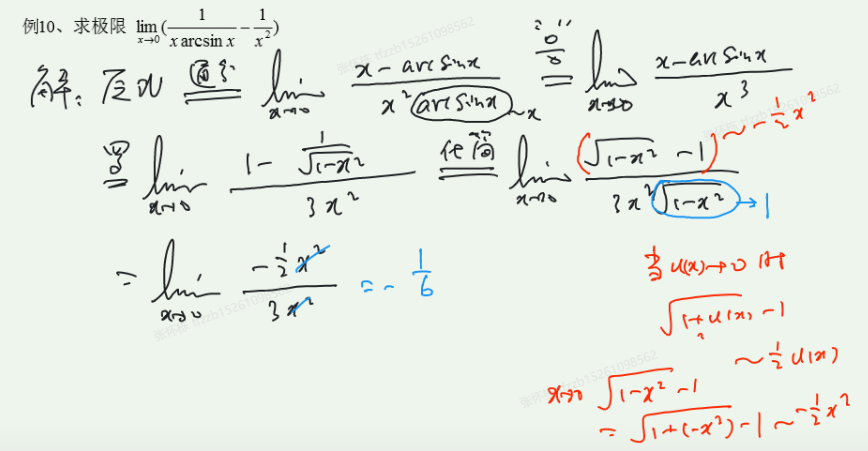 例10、求极限 lim_{x→0}(1/(x arcsin x) - 1/x²)
解：原式 通分 lim_{x→0} (x - arcsin x)/(x² arcsin x) ~x "0/0" = lim_{x→0} (x - arcsin x)/x³
洛 = lim_{x→0} (1 - 1/√(1-x²))/(3x²) 化简 = lim_{x→0} (√(1-x²) - 1)/(3x²√(1-x²)) ~ -1/2 x² → 1
= lim_{x→0} (-1/2 x²)/(3x²) = -1/6
当 u(x)→0 时
√(1+u(x)) - 1
~ 1/2 u(x)
x→0 √(1-x²) - 1
= √(1+(-x²)) - 1 ~ -1/2 x²